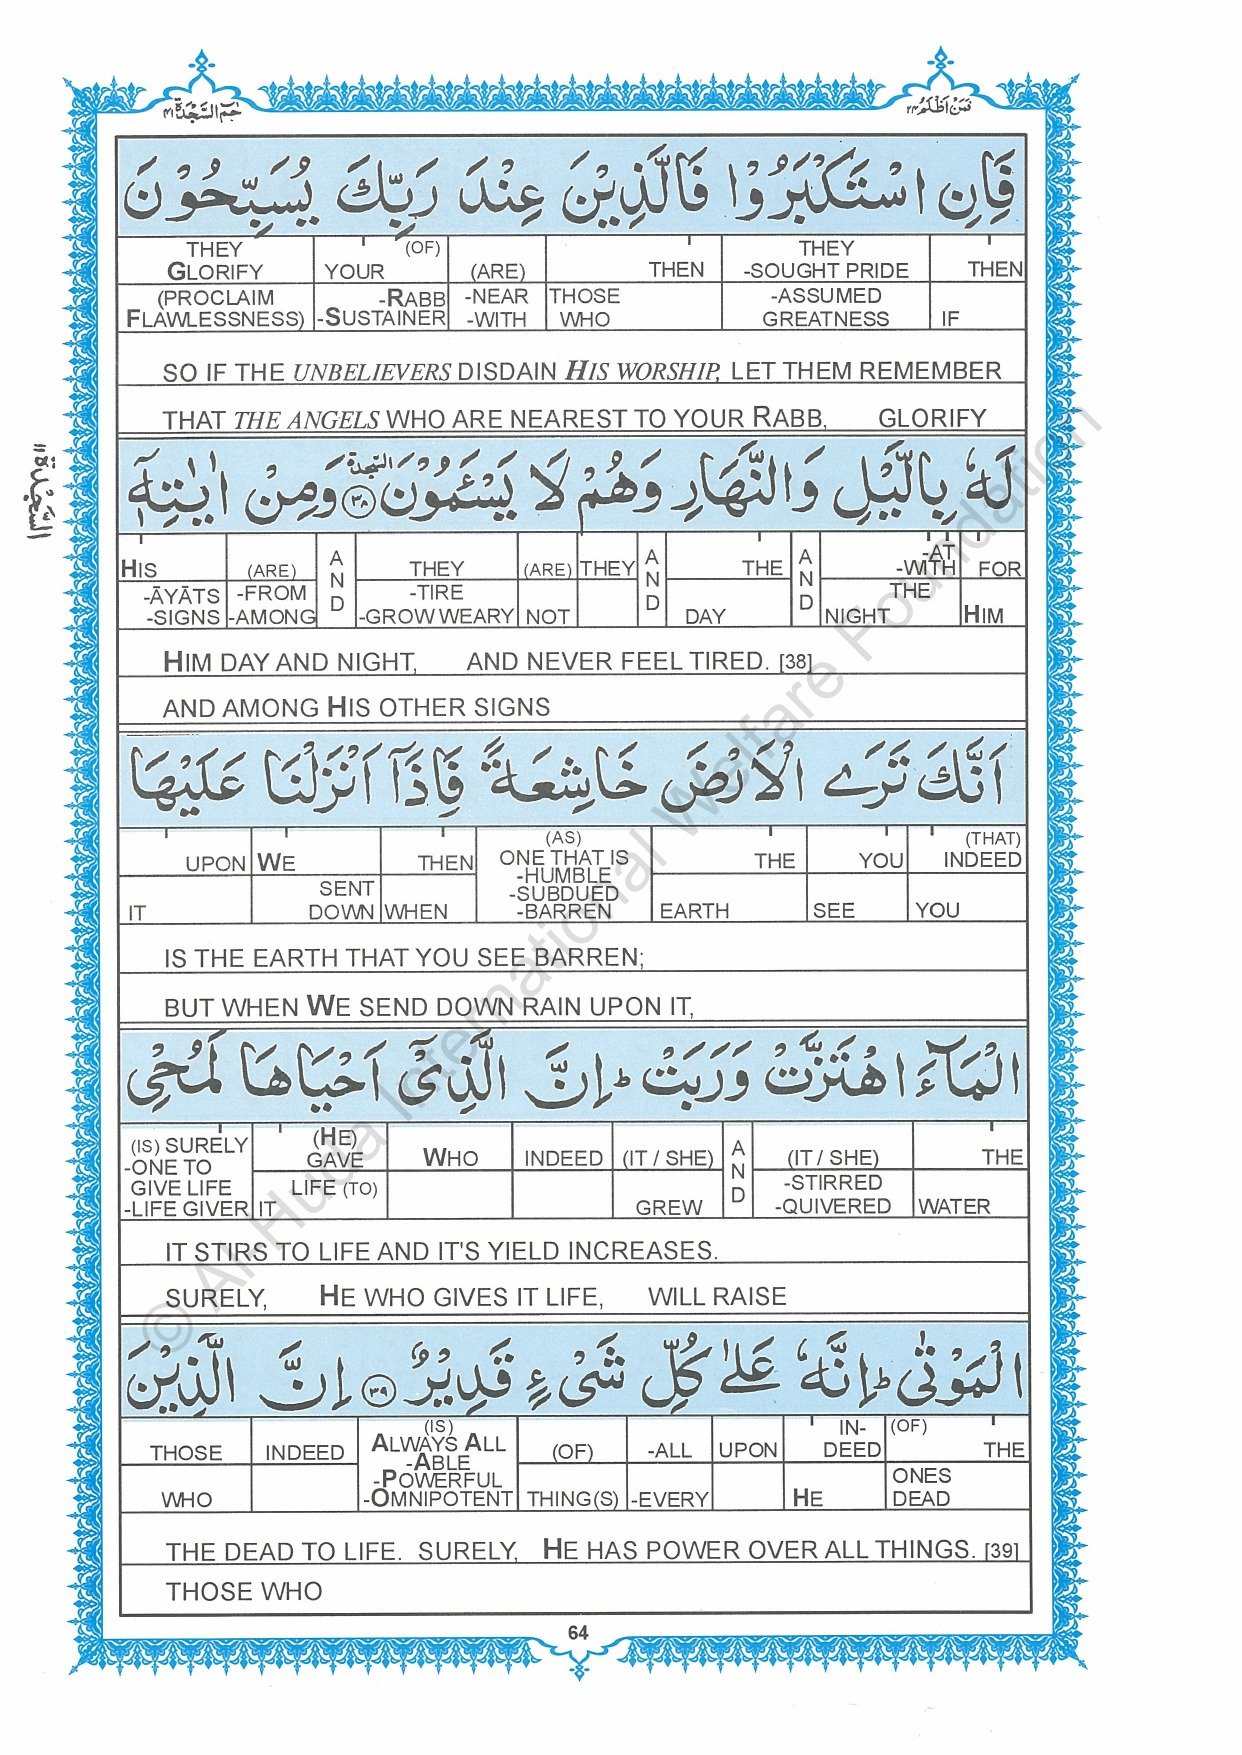 حٰمٓ السَّجْدَة ٤١
فَمَنْ اَظْلَمُ ٢٤
فَاِنِ اسْتَكْبَرُوْا فَالَّذِيْنَ عِنْدَ رَبِّكَ يُسَبِّحُوْنَ
THEY (OF) THEY
GLORIFY YOUR (ARE) THEN -SOUGHT PRIDE THEN
(PROCLAIM -RABB -NEAR THOSE -ASSUMED
FLAWLESSNESS) -SUSTAINER -WITH WHO GREATNESS IF
SO IF THE UNBELIEVERS DISDAIN HIS WORSHIP, LET THEM REMEMBER
THAT THE ANGELS WHO ARE NEAREST TO YOUR RABB, GLORIFY
السَّجْدَة ١١
لَهٗ بِالَّيْلِ وَالنَّهَارِ وَهُمْ لَا يَسْـَٔمُوْنَ السجدة ٣٨ وَمِنْ اٰيٰتِهٖٓ
HIS (ARE) AND THEY (ARE) THEY AND THE AND -AT -WITH FOR
-ĀYĀTS -FROM -TIRE THE
-SIGNS -AMONG -GROW WEARY NOT DAY NIGHT HIM
HIM DAY AND NIGHT, AND NEVER FEEL TIRED. [38]
AND AMONG HIS OTHER SIGNS
اَنَّكَ تَرَى الْاَرْضَ خَاشِعَةً فَاِذَآ اَنْزَلْنَا عَلَيْهَا
(AS) (THAT)
UPON WE THEN ONE THAT IS THE YOU INDEED
-HUMBLE
SENT -SUBDUED
IT DOWN WHEN -BARREN EARTH SEE YOU
IS THE EARTH THAT YOU SEE BARREN;
BUT WHEN WE SEND DOWN RAIN UPON IT,
الْمَآءَ اهْتَزَّتْ وَرَبَتْ ؕ اِنَّ الَّذِيْٓ اَحْيَاهَا لَمُحْيِ
(IS) SURELY (HE) AND
-ONE TO GAVE WHO INDEED (IT / SHE) (IT / SHE) THE
GIVE LIFE LIFE (TO) -STIRRED
-LIFE GIVER IT GREW -QUIVERED WATER
IT STIRS TO LIFE AND IT'S YIELD INCREASES.
SURELY, HE WHO GIVES IT LIFE, WILL RAISE
الْمَوْتٰى ؕ اِنَّهٗ عَلٰى كُلِّ شَيْءٍ قَدِيْرٌ ٣٩ اِنَّ الَّذِيْنَ
(IS) IN- (OF)
THOSE INDEED ALWAYS ALL (OF) -ALL UPON DEED THE
-ABLE
-POWERFUL ONES
WHO -OMNIPOTENT THING(S) -EVERY HE DEAD
THE DEAD TO LIFE. SURELY, HE HAS POWER OVER ALL THINGS. [39]
THOSE WHO
64
© Al-Huda International Welfare Foundation